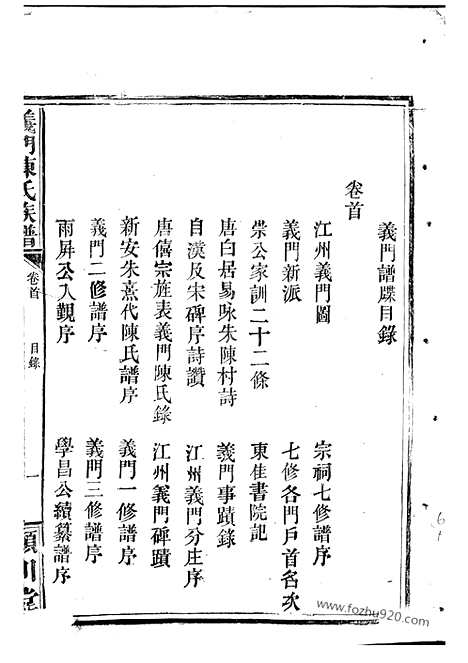 義門譜牒目錄
卷首
江州義門圖
宗祠七修譜序
義門新派
七修各門戶首名次
崇公家訓二十二條
東佳書院記
唐白居易咏朱陳村詩
義門事蹟錄
自漢及宋碑序詩讚
江州義門分庄序
唐僖宗旌表義門陳氏錄
江州義門碑蹟
新安朱熹代陳氏譜序
義門一修譜序
義門二修譜序
義門三修譜序
雨屏公入觀序
學昌公續纂譜序
義門陳氏族譜
卷首
目錄
一
潁川堂
www.fozhu920.com